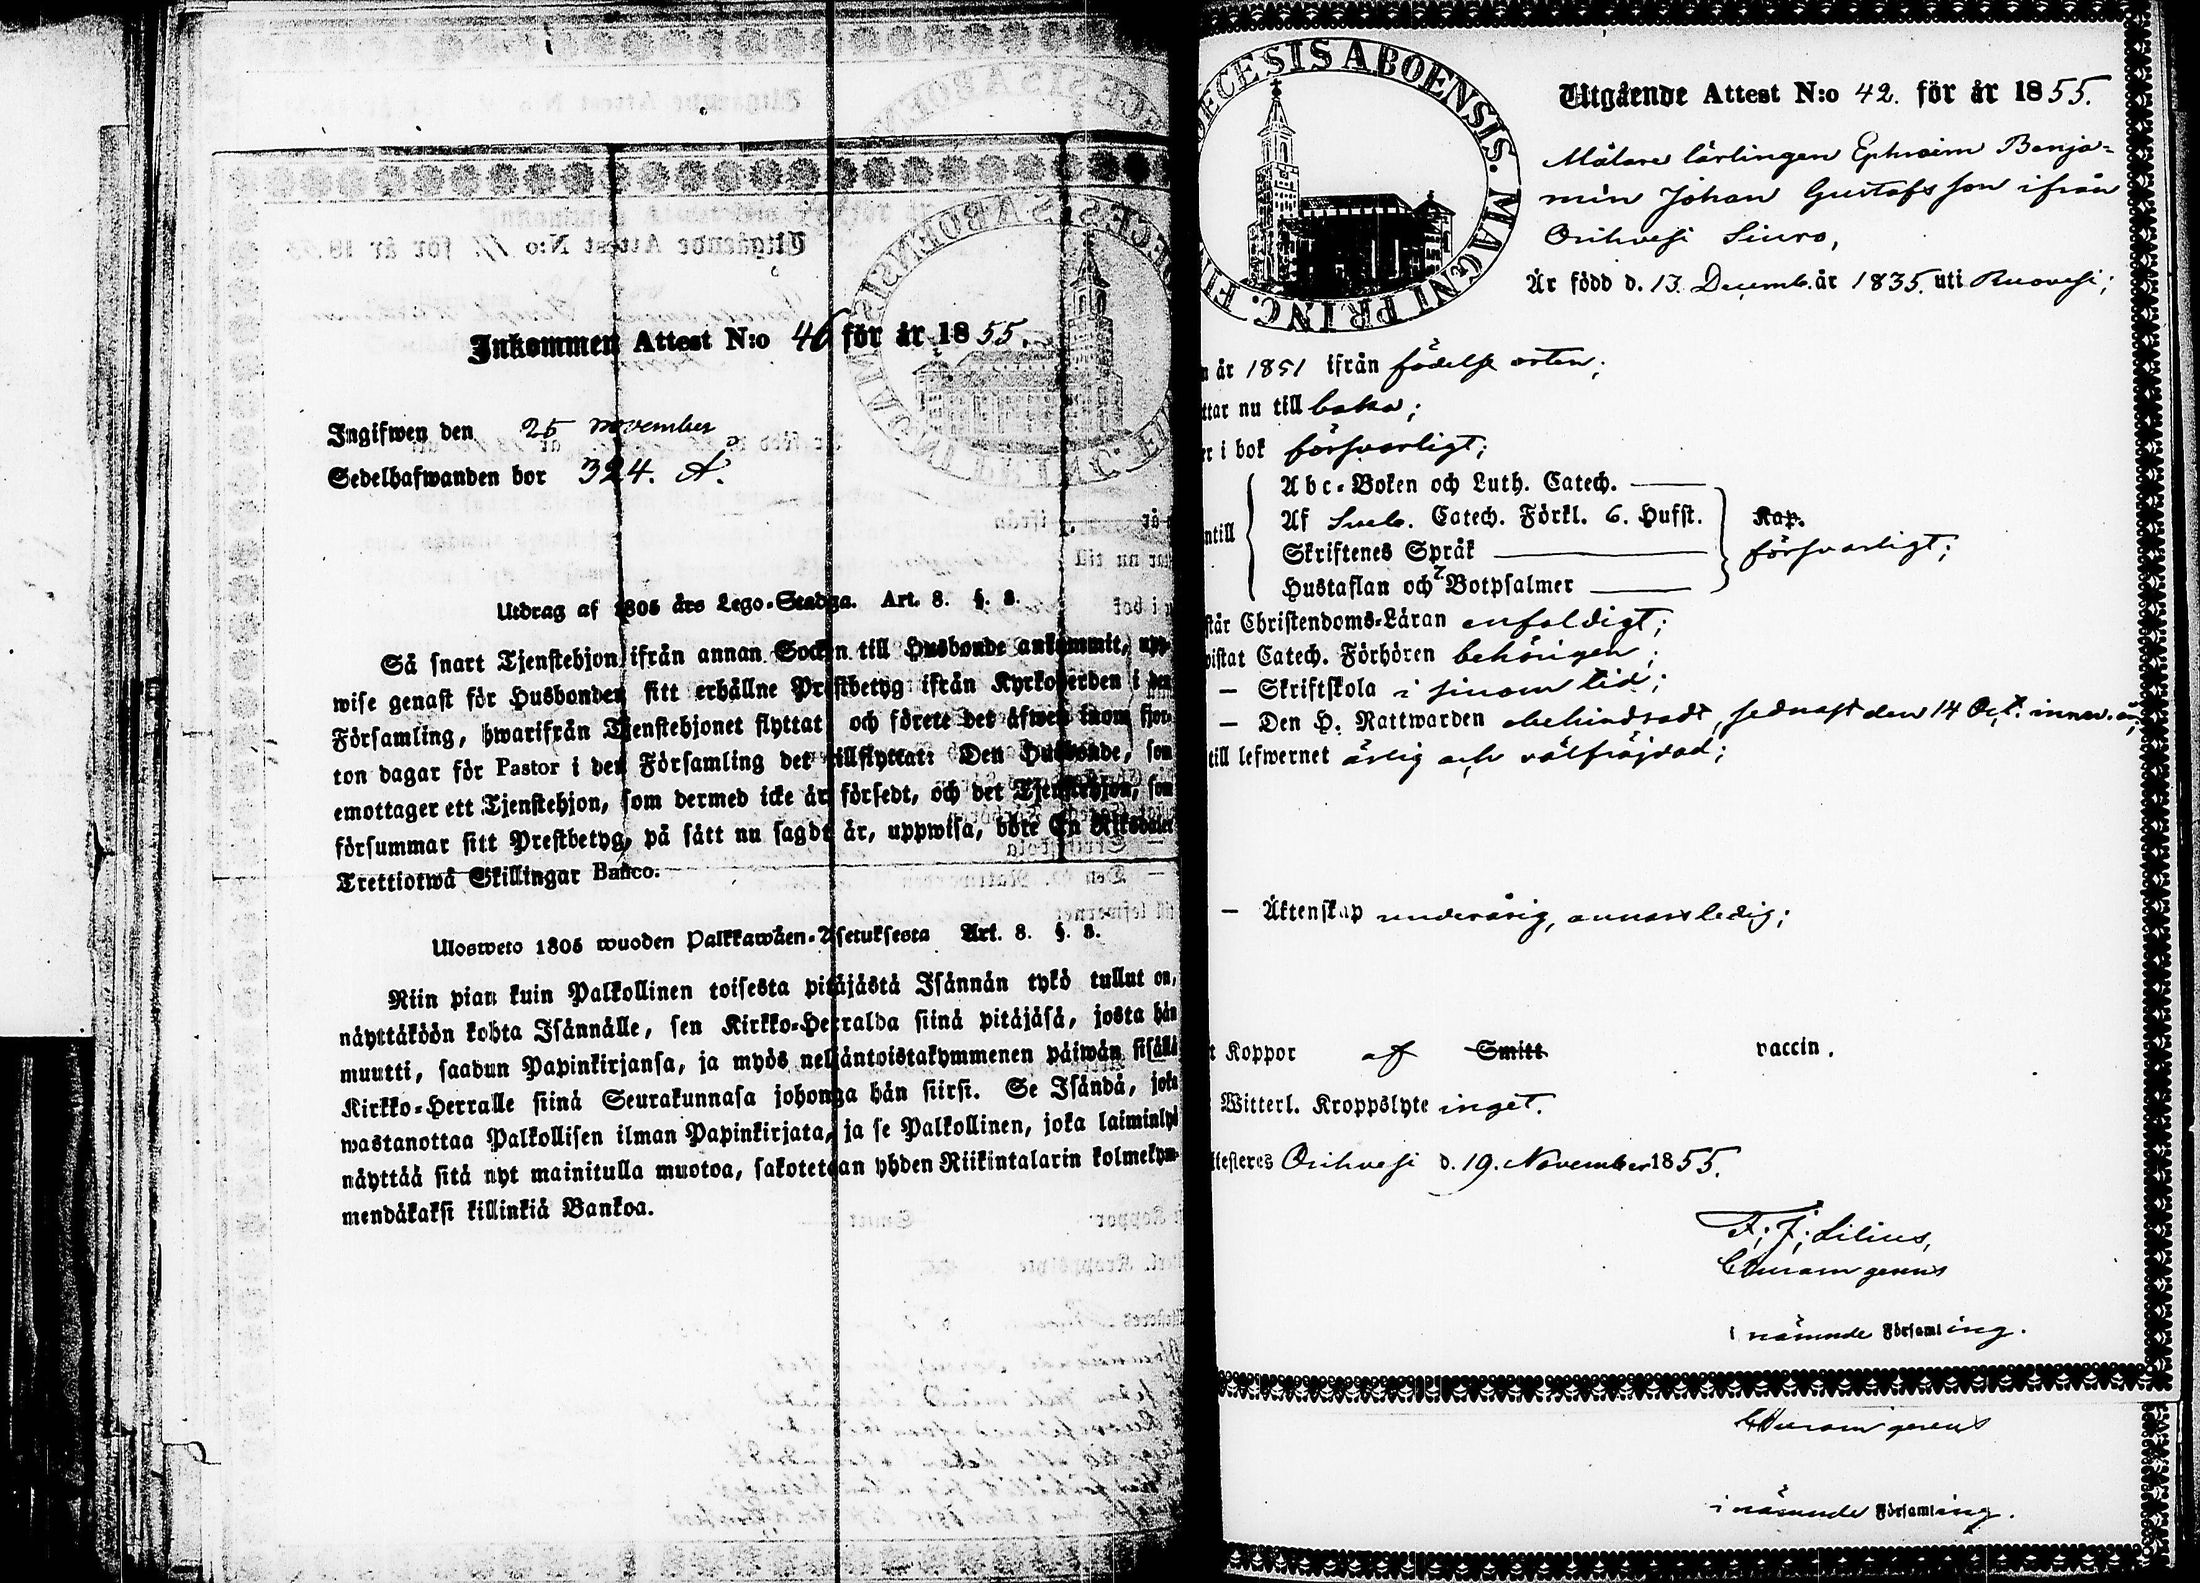 Inkommen Attest N:o 46 för år 1855.
Ingifwen den 25 november
Sedelhafwanden bor 324. A.
Utdrag af 1805 års Lego-Stadga. Art. 8. §. 8.
Så snart Tjenstehjon ifrån annan Socken till Husbonde ankommit, upp-
wise genast för Husbonden sitt erhållne Prestbetyg ifrån Kyrkoherden i den
Församling, hwarifrån Tjenstehjonet flyttat, och förete det äfwen inom fjor-
ton dagar för Pastor i den Församling det tillflyttat: Den Husbonde, som
emottager ett Tjenstehjon, som dermed icke är försedt, och det Tjenstehjon, som
försummar sitt Prestbetyg, på sätt nu sagdt är, uppwisa, böte En Riksdaler
Trettiotwå Skillingar Banco.
Ulosweto 1805 wuoden Palkkawäen-Asetuksesta Art. 8. §. 8.
Niin pian kuin Palkollinen toisesta pitäjästä Isännän tykö tullut on,
näyttäköön kohta Isännälle, sen Kirkko-Herralda siinä pitäjäsä, josta hän
muutti, saadun Papinkirjansa, ja myös neljäntoistakymmenen päiwän sisällä
Kirkko-Herralle siinä Seurakunnasa johonga hän siirsi. Se Isändä, joka
wastanottaa Palkollisen ilman Papinkirjata, ja se Palkollinen, joka laiminlyö
näyttää sitä nyt mainitulla muotoa, sakotetaan yhden Riikintalarin kolmekym-
mendäkaksi killinkiä Bankoa.
DECESIS ABOENSIS. MAGNI PRINC. FI
Utgående Attest N:o 42. för år 1855.
Målare lärlingen Ephraim Benja-
min Johan Gustafsson ifrån
Orihvesi Siuro,
Är född d. 13. Decemb. år 1835. uti Ruovesi;
år 1851 ifrån födelse orten;
ttar nu till baka;
r i bok försvarligt;
Abc-Boken och Luth. Catech.
ntill Af Sveb. Catech. Förkl. 6. Hufst. Kap.
Skriftenes Språk försvarligt;
Hustaflan och 7 Botpsalmer
står Christendoms-Läran enfaldigt;
vistat Catech. Förhören behörigen;
— Skriftskola i sinom tid;
— Den H. Nattwarden obehindradt, sednast den 14 Oct. innev. år;
till lefwernet ärlig och välfräjdad;
— Äktenskap underårig, annars ledig;
t Koppor af Smitt vaccin.
Witterl. Kroppslyte inget.
ttesteres Orihvesi d. 19. November 1855.
F. J. Lilius,
Curam gerens
i nämnde Församling.
Curam gerens
i nämnde Församling.